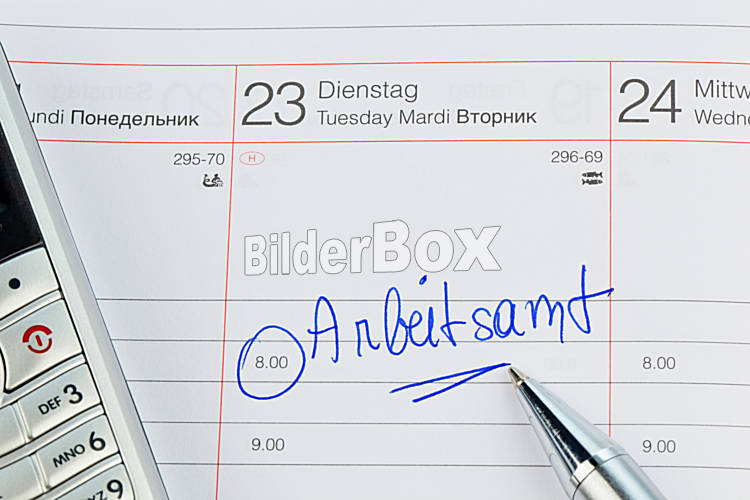 23 Dienstag
Tuesday Mardi Вторник
24 Mittw
Wedne
undi Понедельник
295-70
H
296-69
BilderBox
Arbeitsamt
8.00
8.00
9.00
9.00
DEF 3
MNO 6
YZ 9